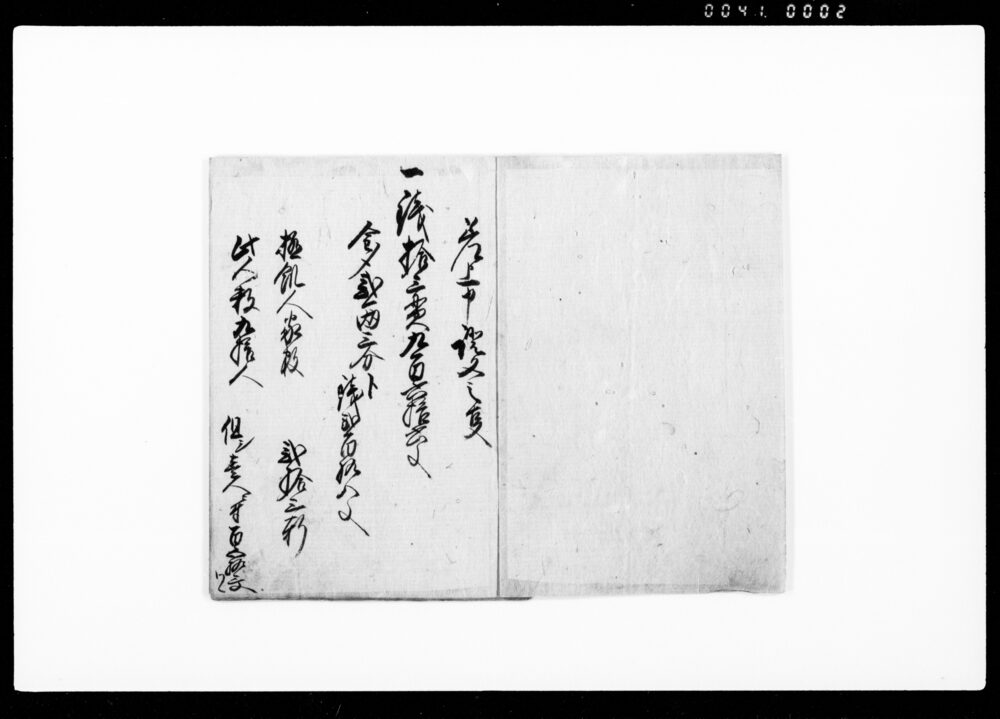 0041 0002
差上申證文之事
一銭拾三貫九百六拾六文
金弐両三分ト銭弐百拾八文
極飢人家数 弐拾三軒
此人数九拾人 但シ壱人ニ付百五拾五文ツヽ